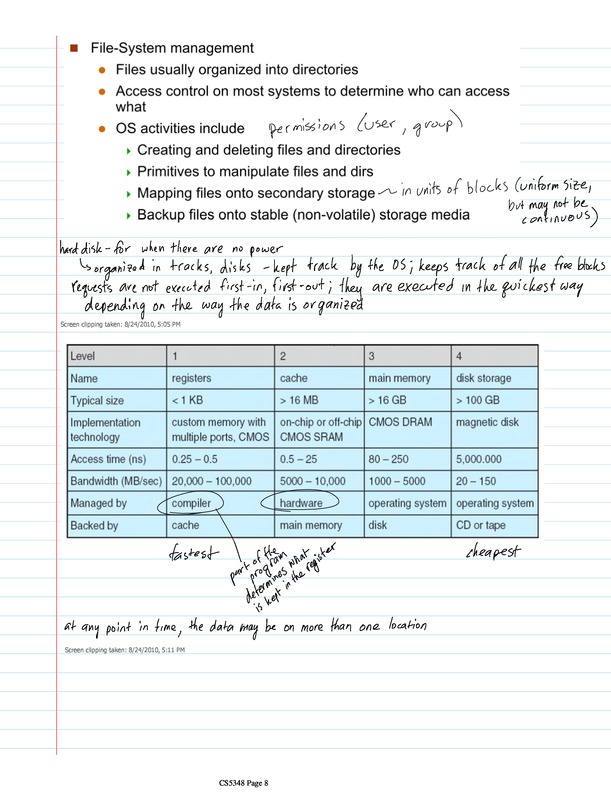 File-System management
Files usually organized into directories
Access control on most systems to determine who can access
what
OS activities include permissions (user, group)
Creating and deleting files and directories
Primitives to manipulate files and dirs
Mapping files onto secondary storage ~ in units of blocks (uniform size,
but may not be
Backup files onto stable (non-volatile) storage media continuous)
hard disk - for when there are no power
organized in tracks, disks - kept track by the OS; keeps track of all the free blocks
requests are not executed first-in, first-out; they are executed in the quickest way
depending on the way the data is organized
Screen clipping taken: 8/24/2010, 5:05 PM
Level 1 2 3 4
Name registers cache main memory disk storage
Typical size < 1 KB > 16 MB > 16 GB > 100 GB
Implementation custom memory with on-chip or off-chip CMOS DRAM magnetic disk
technology multiple ports, CMOS CMOS SRAM
Access time (ns) 0.25 – 0.5 0.5 – 25 80 – 250 5,000.000
Bandwidth (MB/sec) 20,000 – 100,000 5000 – 10,000 1000 – 5000 20 – 150
Managed by compiler hardware operating system operating system
Backed by cache main memory disk CD or tape
fastest cheapest
part of the
program
determines what
is kept in the register
at any point in time, the data may be on more than one location
Screen clipping taken: 8/24/2010, 5:11 PM
CS5348 Page 8